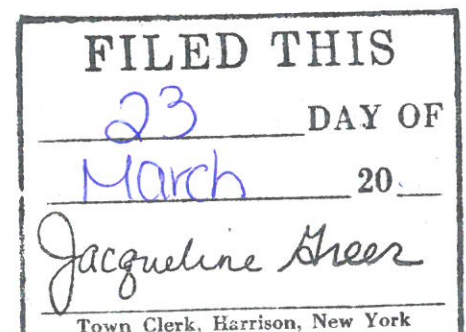 FILED THIS
23 DAY OF
March 20
Jacqueline Greer
Town Clerk, Harrison, New York